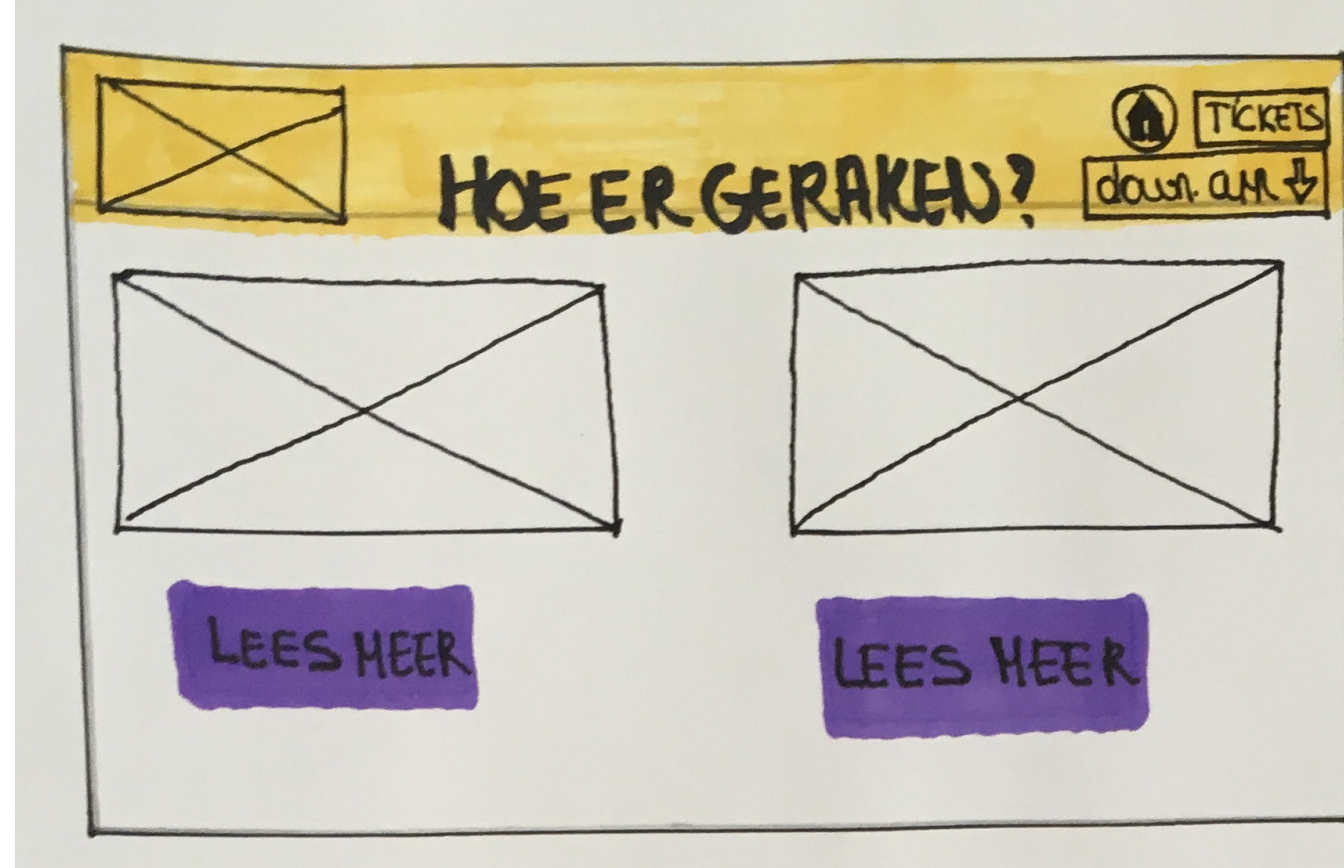 TICKETS
HOE ER GERAKEN?
down. APP
LEES MEER
LEES MEER